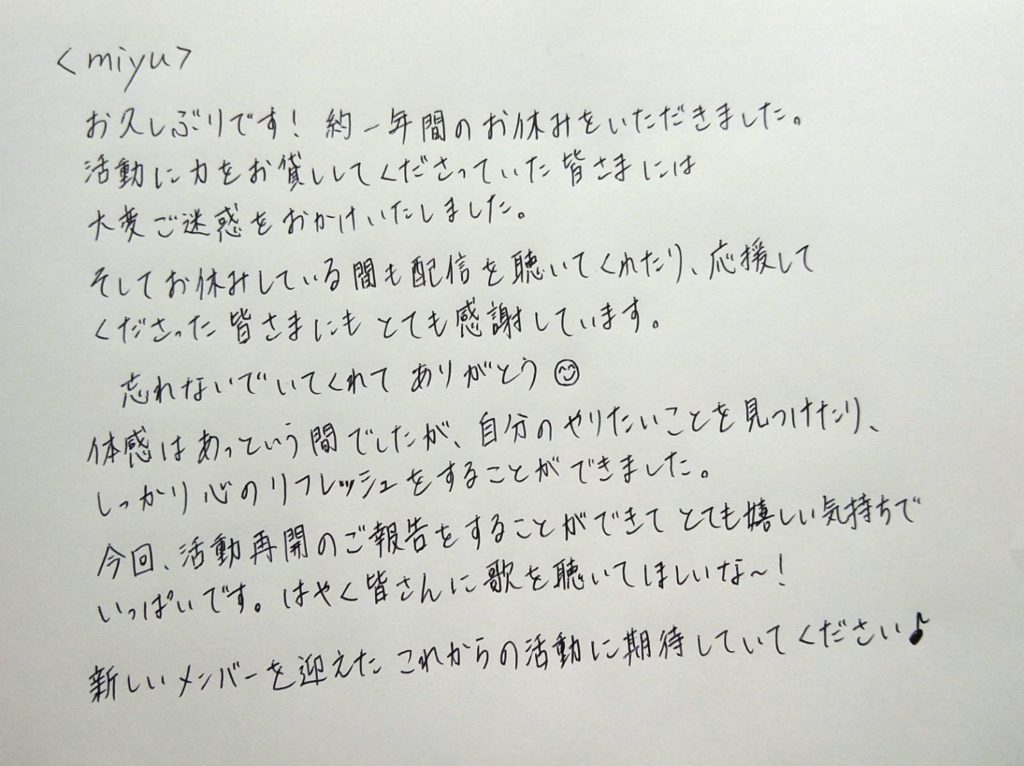 <miyu>
お久しぶりです！約一年間のお休みをいただきました。
活動に力をお貸ししてくださっていた皆さまには
大変ご迷惑をおかけいたしました。
そしてお休みしている間も配信を聴いてくれたり、応援して
くださった皆さまにもとても感謝しています。
忘れないでいてくれてありがとう😊
体感はあっという間でしたが、自分のやりたいことを見つけたり、
しっかり心のリフレッシュをすることができました。
今回、活動再開のご報告をすることができてとても嬉しい気持ちで
いっぱいです。はやく皆さんに歌を聴いてほしいな〜！
新しいメンバーを迎えたこれからの活動に期待していてください♪